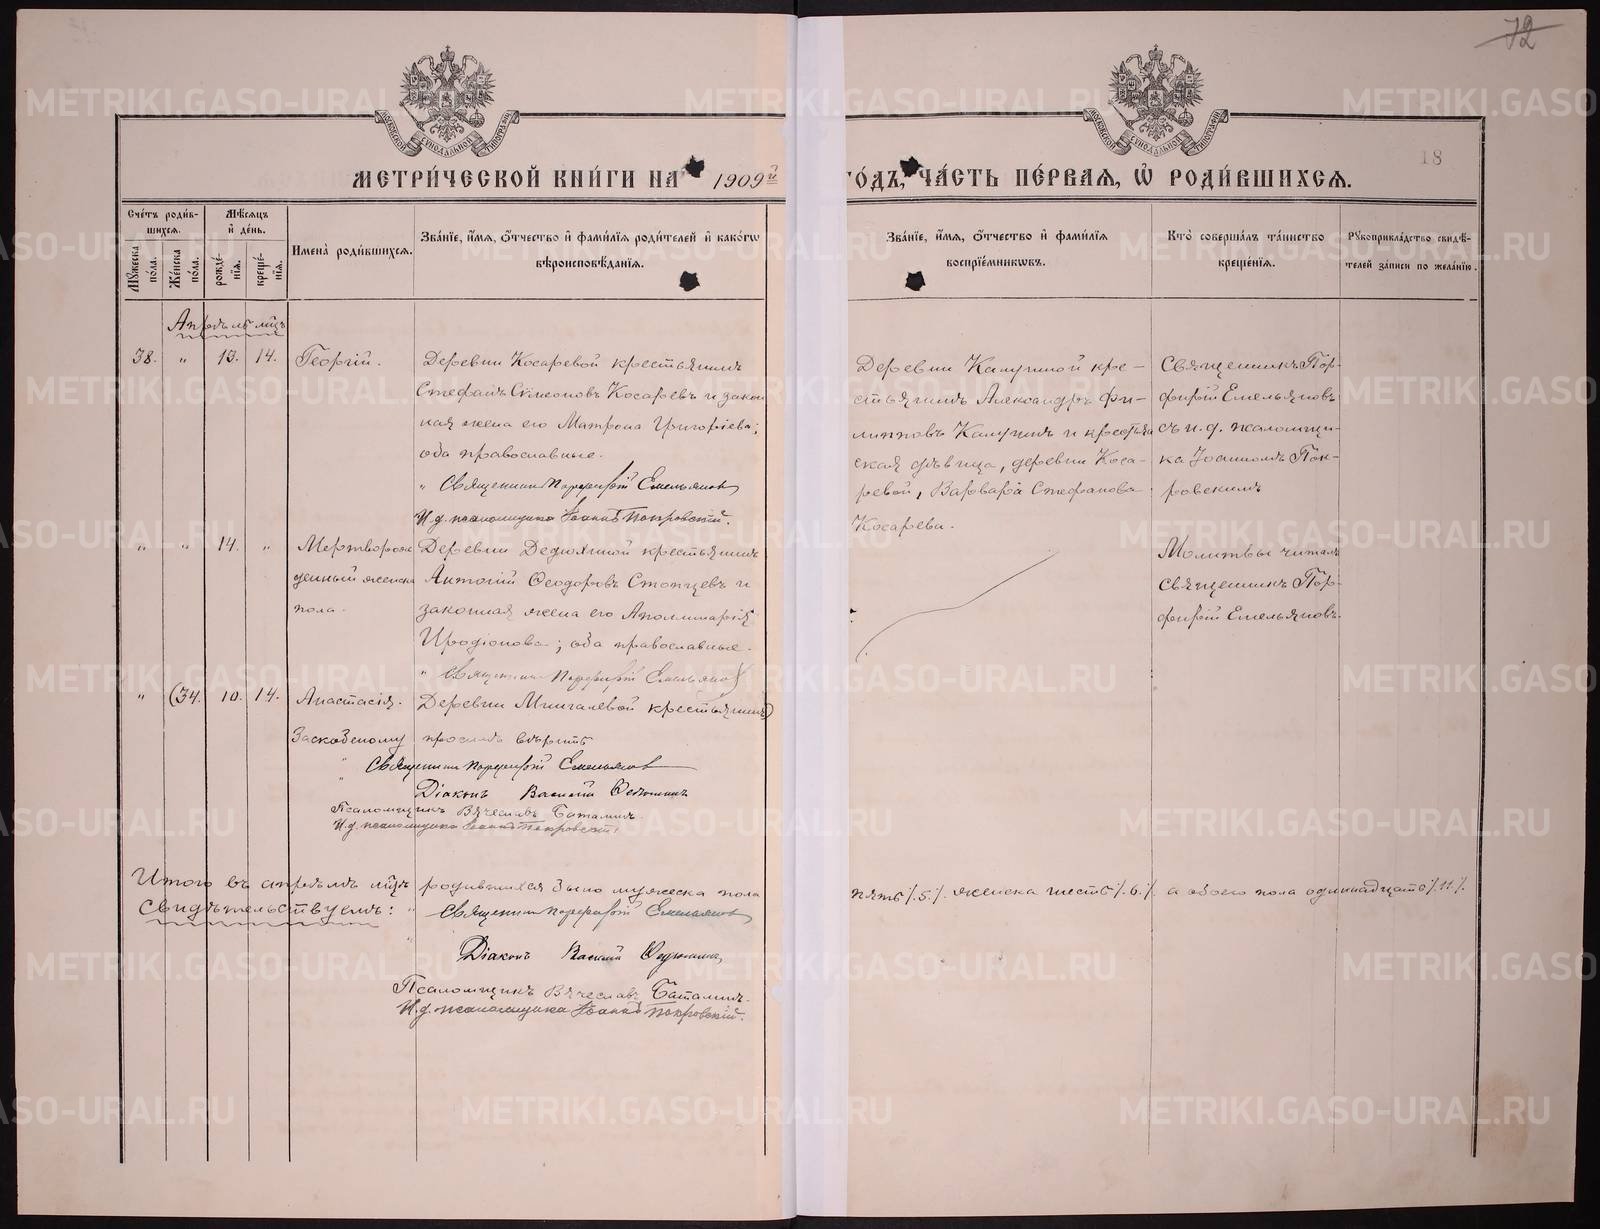 72
18
МОСКОВСКОЙ СѴНОДАЛЬНОЙ ТИПОГРАФІИ
МОСКОВСКОЙ СѴНОДАЛЬНОЙ ТИПОГРАФІИ
МЕТРИ́ЧЕСКОЙ КНИ́ГИ НА 1909й ГО́ДЪ, ЧА́СТЬ ПЕ́РВАЯ, Ѿ РОДИ́ВШИХСЯ.
Сче́тъ роди́в-
шихся.
Мѣ́сяцъ
и҆ де́нь.
Му́жеска
пола.
Же́нска
по́ла.
рожде́-
нїя.
креще́-
нїя.
Имена̀ роди́вшихся.
Зва́нїе, и҆́мя, ѻ҆́тчество и҆ фами́лїя роди́телей и҆ како́гѡ
вѣроисповѣ́данїя.
Зва́нїе, и҆́мя, ѻ҆́тчество и҆ фами́лїя
воспрїе́мникѡвъ.
Кто̀ соверша́лъ та́инство
креще́нїя.
Рꙋкоприкла́дство свидѣ́-
телей за́писи по жела́нїю.
Апрѣль мѣц
38. " 13. 14. Георгій.
Деревни Косаревой крестьянинъ
Стефанъ Симеоновъ Косаревъ и закон
ная жена его Матрона Григорьева;
оба православные.
" Священникъ Порфирій Емельяновъ
И.д. псаломщика Іоаннъ Покровскій.
Деревни Калугиной кре-
стьянинъ Александръ Фи-
липповъ Калугинъ и крестьян
ская дѣвица, деревни Коса-
ревой, Варвара Стефанова
Косарева.
Священникъ Пор-
фирій Емельяновъ
съ и.д. псаломщи-
ка Іоанномъ Пок-
ровскимъ
" " 14. " Мертворож
денный женска
пола.
Деревни Дедюхиной крестьянинъ
Антоній Ѳеодоровъ Стопцевъ и
законная жена его Аполлинарія
Иродіонова; оба православные.
" Священникъ Порфирій Емельяновъ
Молитвы читалъ
священникъ Пор-
фирій Емельяновъ.
" (34. 10. 14. Анастасія. Деревни Мингалевой крестьянинъ)
Заскобленному просимъ вѣрить
" Священникъ Порфирій Емельяновъ
Діаконъ Василій Ѳедюшинъ
Псаломщикъ Вячеславъ Баталинъ
И.д. псаломщика Іоаннъ Покровскій
Итого въ апрѣлѣ мѣцѣ родившихся было мужеска пола пять /.5./. женска шесть /.6./. а обоего пола одиннадцать /.11./.
Свидѣтельствуемъ: " Священникъ Порфирій Емельяновъ
Діаконъ Василій Ѳедюшинъ
Псаломщикъ Вячеславъ Баталинъ.
И.д. псаломщика Іоаннъ Покровскій.
METRIKI.GASO-URAL.RU